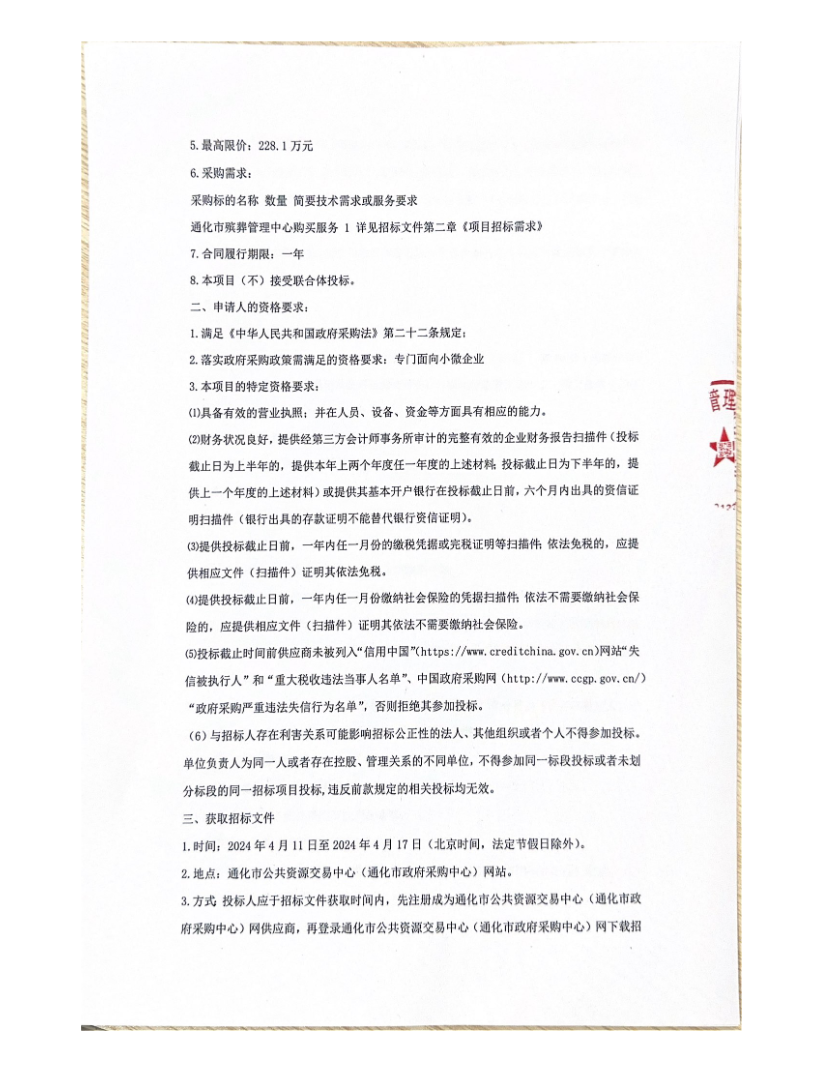 5.最高限价：228.1万元
6.采购需求：
采购标的名称 数量 简要技术需求或服务要求
通化市殡葬管理中心购买服务 1 详见招标文件第二章《项目招标需求》
7.合同履行期限：一年
8.本项目（不）接受联合体投标。
二、申请人的资格要求：
1.满足《中华人民共和国政府采购法》第二十二条规定；
2.落实政府采购政策需满足的资格要求：专门面向小微企业
3.本项目的特定资格要求：
⑴具备有效的营业执照；并在人员、设备、资金等方面具有相应的能力。
⑵财务状况良好，提供经第三方会计师事务所审计的完整有效的企业财务报告扫描件（投标
截止日为上半年的，提供本年上两个年度任一年度的上述材料；投标截止日为下半年的，提
供上一个年度的上述材料）或提供其基本开户银行在投标截止日前，六个月内出具的资信证
明扫描件（银行出具的存款证明不能替代银行资信证明）。
⑶提供投标截止日前，一年内任一月份的缴税凭据或完税证明等扫描件；依法免税的，应提
供相应文件（扫描件）证明其依法免税。
⑷提供投标截止日前，一年内任一月份缴纳社会保险的凭据扫描件；依法不需要缴纳社会保
险的，应提供相应文件（扫描件）证明其依法不需要缴纳社会保险。
⑸投标截止时间前供应商未被列入“信用中国”(https://www.creditchina.gov.cn)网站“失
信被执行人”和“重大税收违法当事人名单”、中国政府采购网（http://www.ccgp.gov.cn/）
“政府采购严重违法失信行为名单”，否则拒绝其参加投标。
（6）与招标人存在利害关系可能影响招标公正性的法人、其他组织或者个人不得参加投标。
单位负责人为同一人或者存在控股、管理关系的不同单位，不得参加同一标段投标或者未划
分标段的同一招标项目投标,违反前款规定的相关投标均无效。
三、获取招标文件
1.时间：2024年4月11日至2024年4月17日（北京时间，法定节假日除外）。
2.地点：通化市公共资源交易中心（通化市政府采购中心）网站。
3.方式：投标人应于招标文件获取时间内，先注册成为通化市公共资源交易中心（通化市政
府采购中心）网供应商，再登录通化市公共资源交易中心（通化市政府采购中心）网下载招
管理